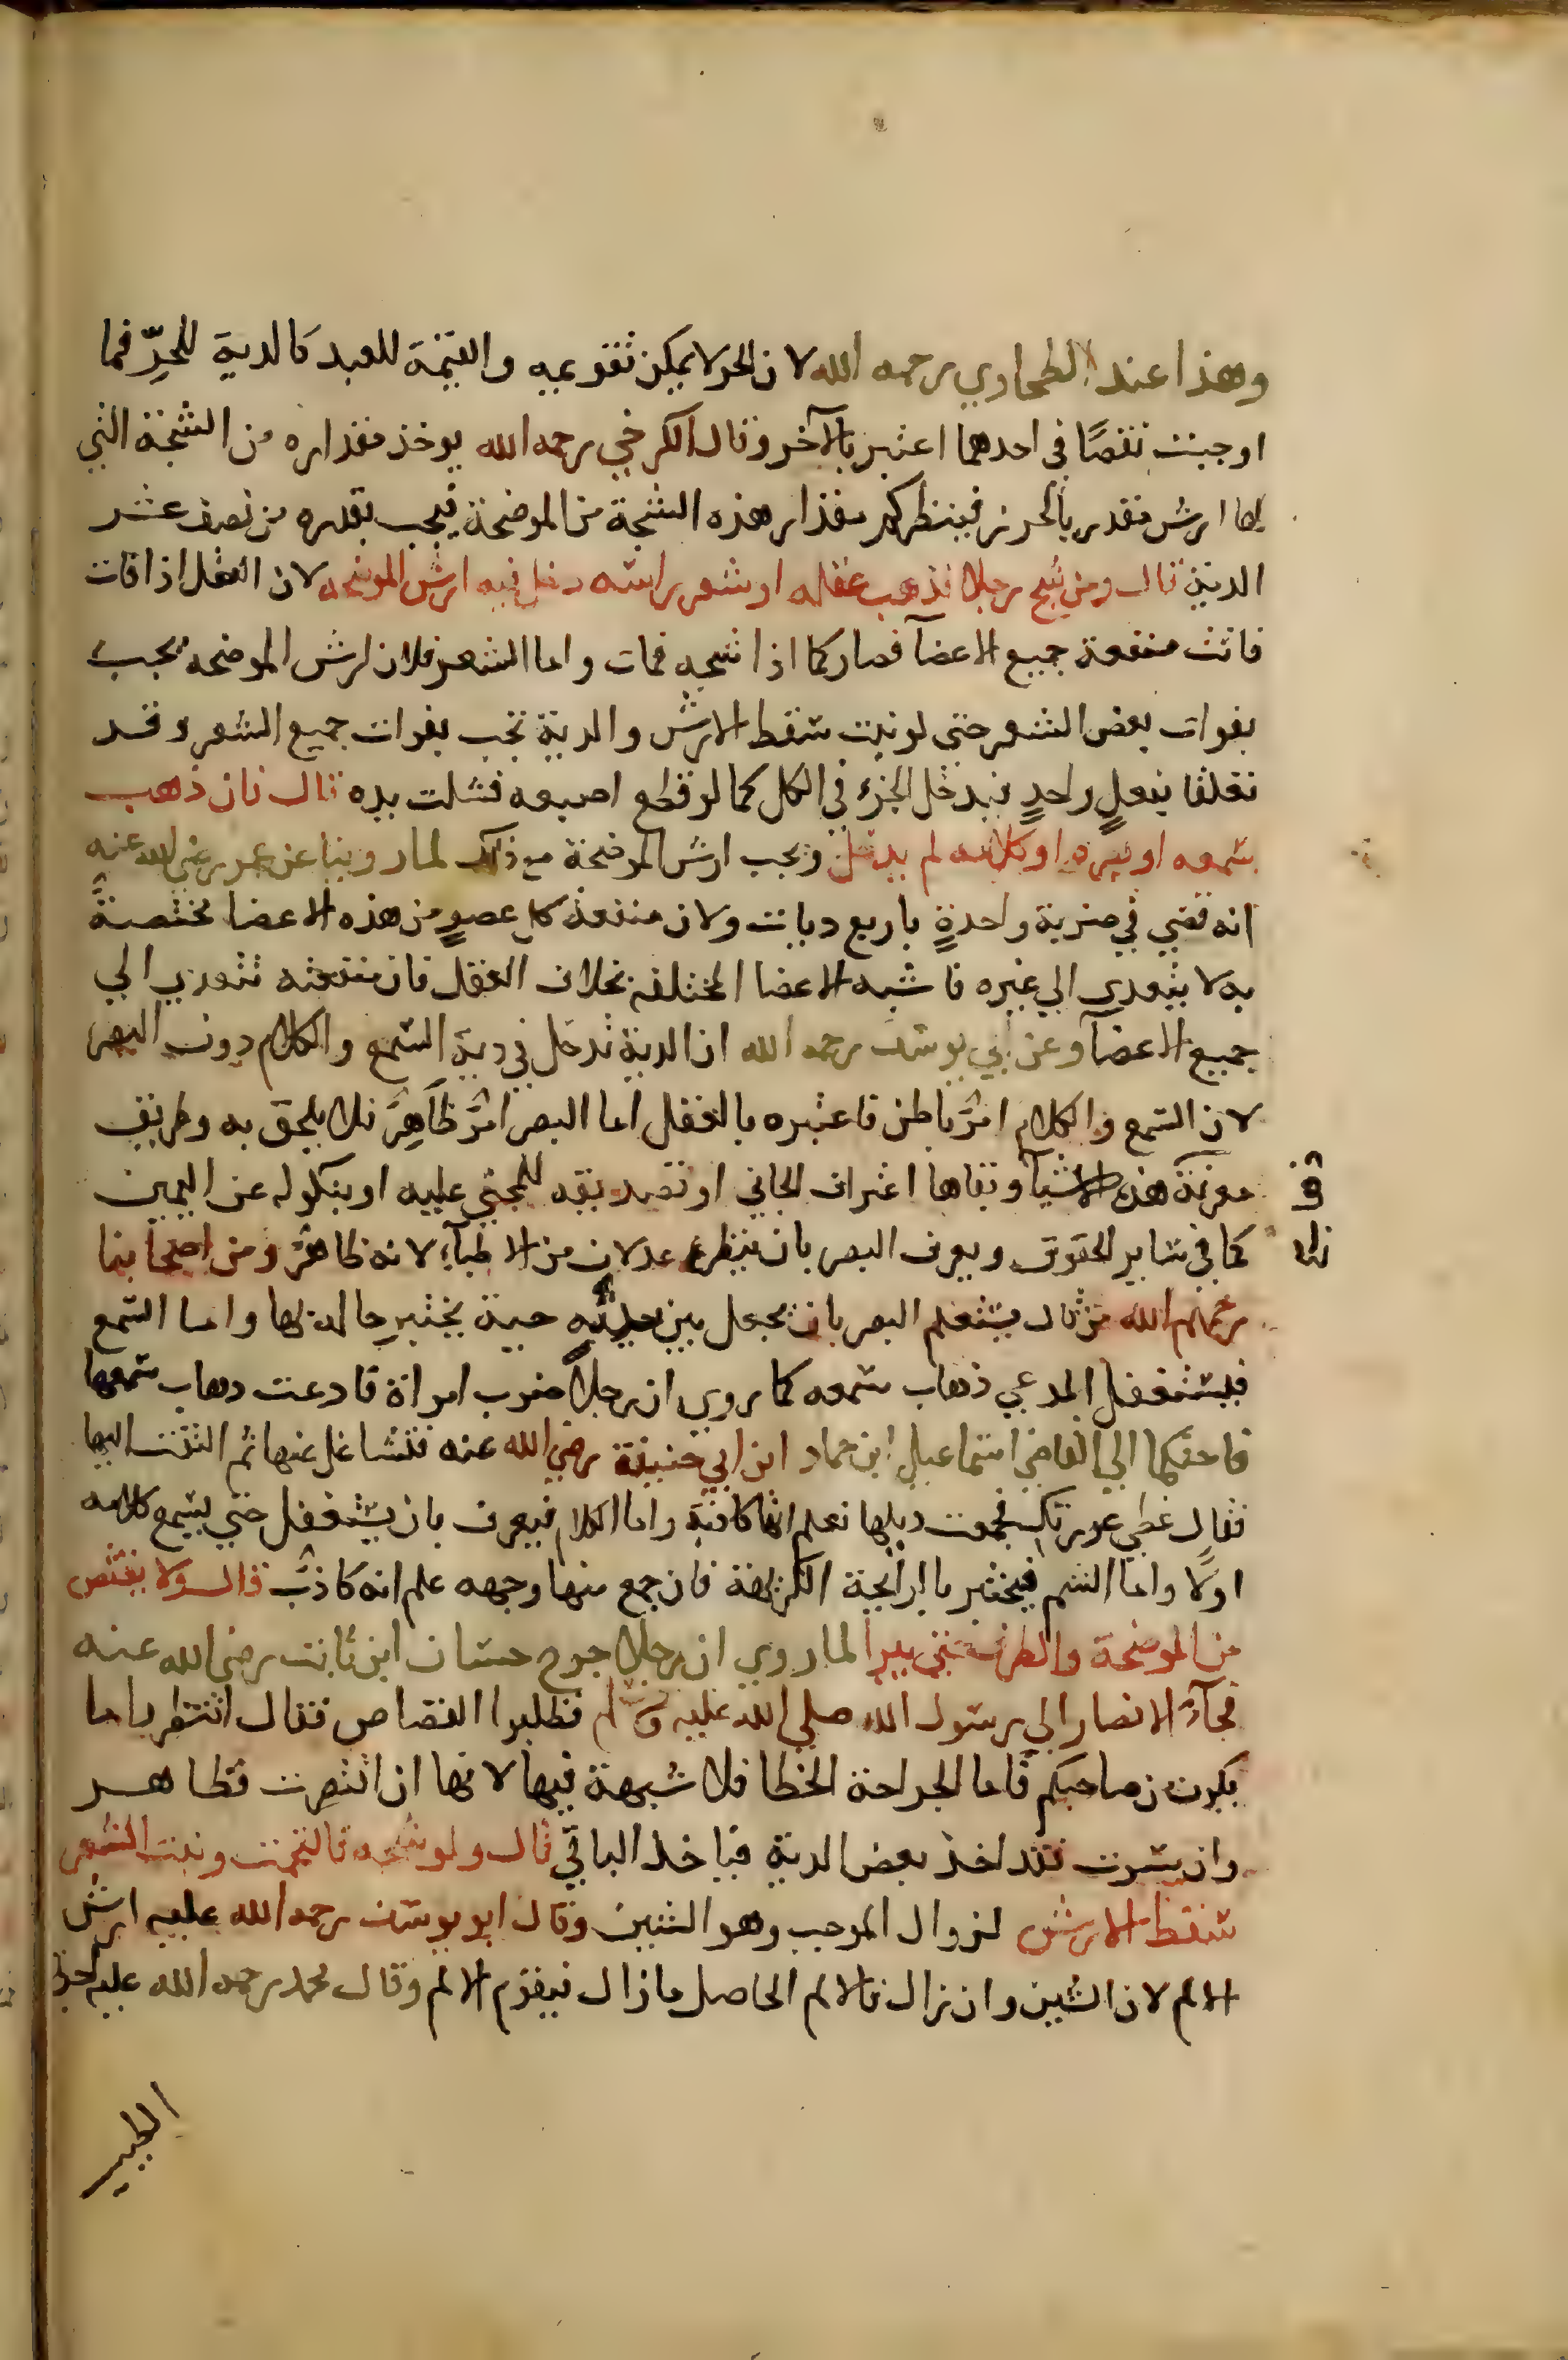 وهذا عند الطحاوي رحمه الله لان الحر لا يمكن تقويمه والقيمة للعبد كالدية للحرّ فما
اوجبت نقصًا في احدهما اعتبر بالآخر وقال الكرخي رحمه الله يوخذ مقداره من الشجة التي
لها ارش مقدر بالحزر فينظر كم مقدار هذه الشجة من الموضحة فيجب بقدره من نصف عشر
الدية قال ومن شج رجلا فذهب عقله او شعر راسه دخل فيه ارش الموضحه لان العقل اذا فات
فاتت منفعة جميع الاعضآ فصار كما اذا شجه فمات واما الشعر فلان ارش الموضحه يجب
بفوات بعض الشعر حتى لو نبت سقط الارش والدية تجب بفوات جميع الشعر وقد
تعلقا بفعلٍ واحدٍ فيدخل الجزء في الكل كما لو قطع اصبعه فشلت يده قال فان ذهب
سمعه او بصره او كلامه لم يدخل ويجب ارش الموضحة مع ذلك لما روينا عن عمر رضي الله عنه
انه قضي في ضربة واحدةٍ باربع ديات ولان منفعة كل عضوٍ من هذه الاعضا مختصةً
به لا يتعدي الي غيره فاشبه الاعضا المختلفة بخلاف العقل فان منفعته تتعدي الي
جميع الاعضآ وعن ابي يوسف رحمه الله ان الدية تدخل في دية السمع والكلام دون البصر
لان السمع والكلام امرٌ باطن فاعتبره بالعقل اما البصر امرٌ ظاهِرٌ فلا يلحق به وطريف
معرفة هذه الاشيآ وبقاها اعتراف الجاني او تصديقه للمجني عليه او بنكوله عن اليمين
كما في ساير الحقوق ويعرف البصر بان ينظره عدلان من الاطبآء لانه ظاهرٌ ومن اصحابنا
رحمهم الله من قال يستعلم البصر بان يجعل بين يديه حية يختبر حاله بها واما السمع
فيستغفل المدعي ذهاب سمعه كما روي ان رجلاً ضرب امراة فادعت دهاب سمعها
فاحتكما الي القاضي اسماعيل ابن حماد ابن ابي حنيفة رضي الله عنه فتشاغل عنها ثم التفت اليها
فقال غطي عورتك فجمعت ديلها فعلم انها كاذبة واما الكلام فيعرف بان يستغفل حتي يسمع كلامه
اولًا واما الشم فيختبر بالرائحة الكريهة فان جمع منها وجهه علم انه كاذبٌ قال ولا يقتص
من الموضحة والطرف حتي يبرا لما روي ان رجلا جرح حسان ابن ثابت رضي الله عنه
فجآء الانصار الي رسول الله صلي الله عليه وسلم فطلبوا القصاص فقال انتظروا ما
يكون من صاحبكم فاما الجراحة الخطا فلا شبهة فيها لانها ان اقتصرت فظاهر
وان سرت فقد اخذ بعض الدية فياخذ الباقي قال ولو شجه فالتحمت ونبت الشعر
سقط الارش لزوال الموجب وهو الشين وقال ابو يوسف رحمه الله عليه ارش
الالم لان الشين وان زال فالالم الحاصل ما زال فيقوم الالم وقال محمد رحمه الله عليه اجرة
قف
الطبيب